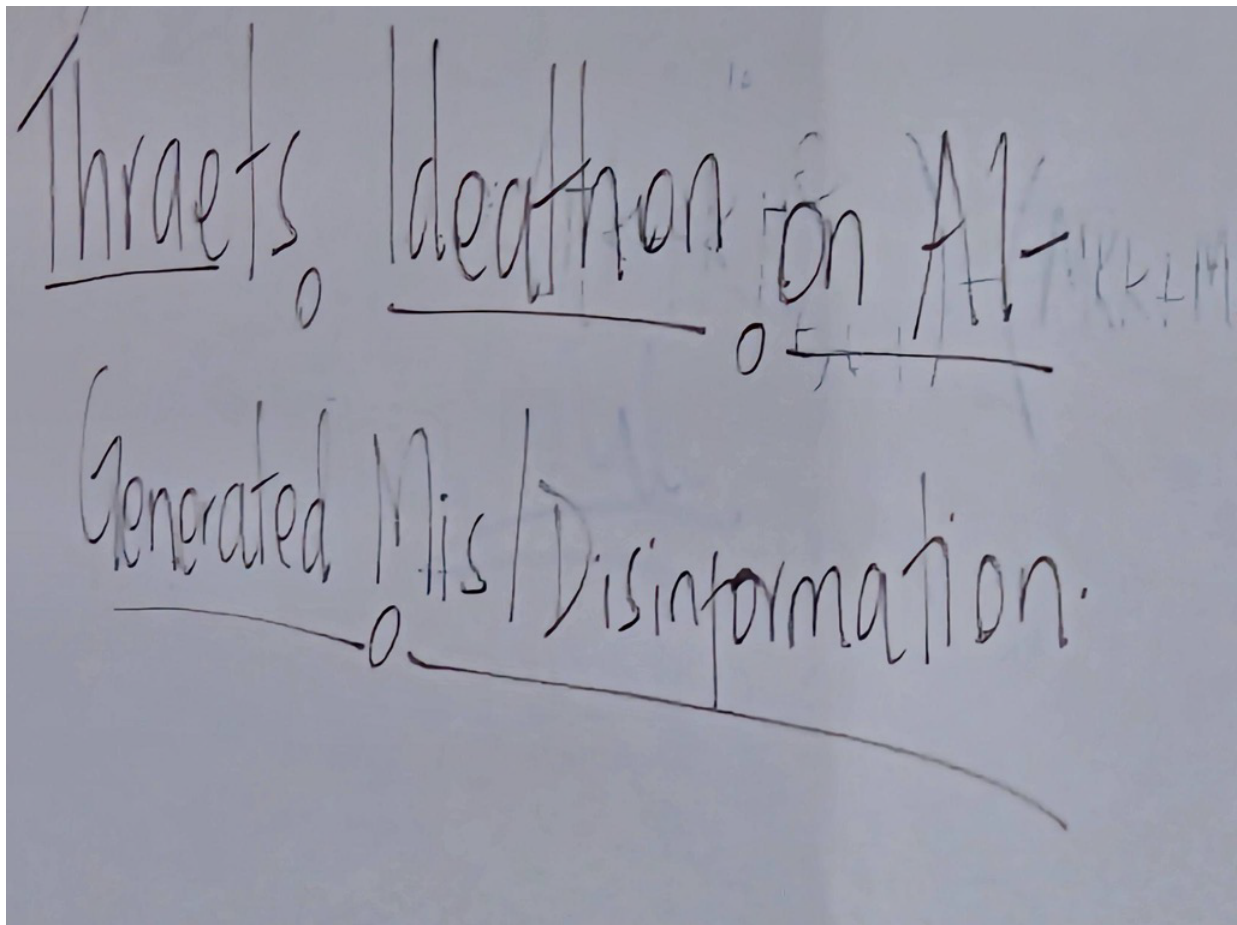 Thraets Ideathon on AI-
Generated Mis/Disinformation.